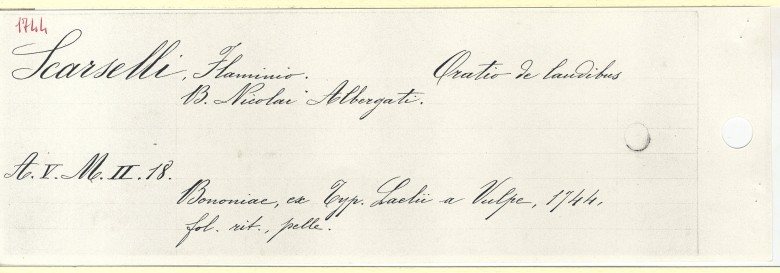 1744
Scarselli, Flaminio. Oratio de laudibus
B. Nicolai Albergati.
A. V. M. II. 18.
Bononiae, ex Typ. Laelii a Vulpe, 1744,
fol. rit., pelle.